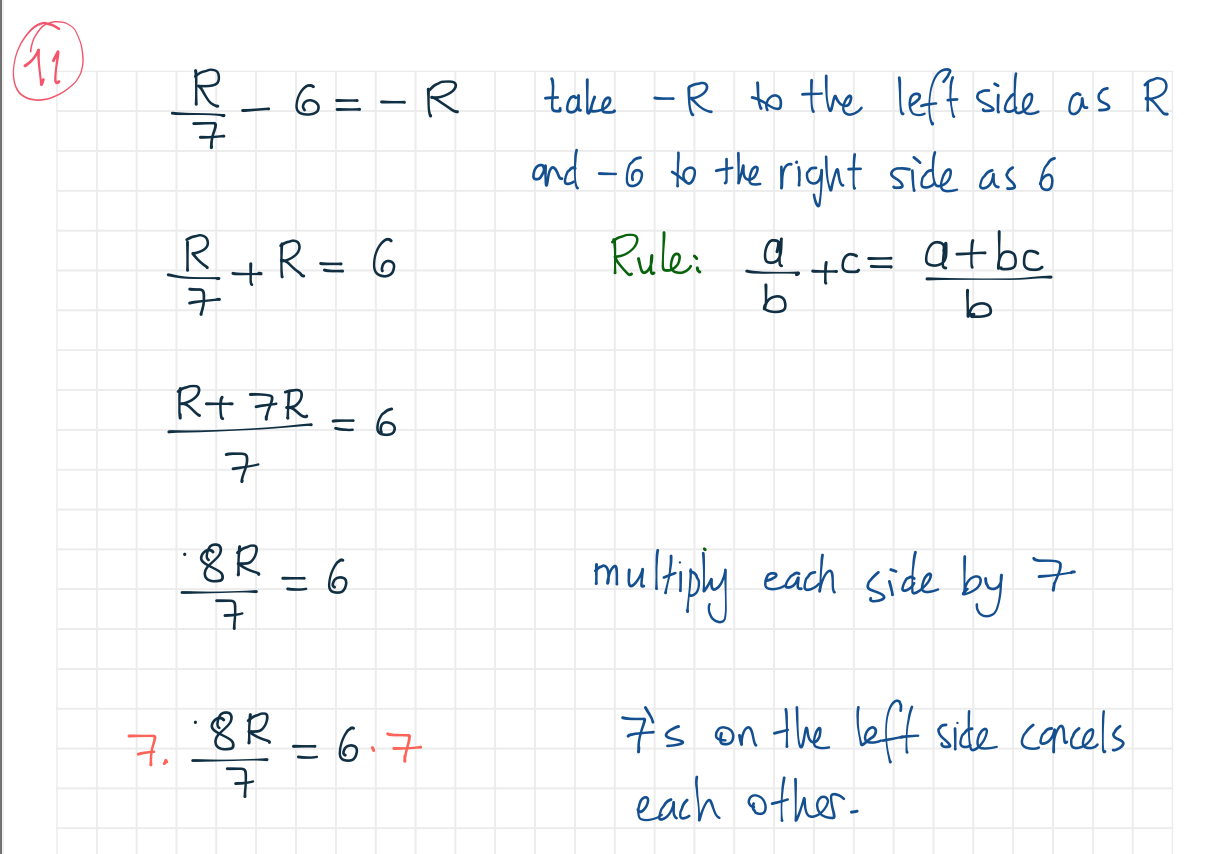 11
R/7 - 6 = - R take -R to the left side as R
and -6 to the right side as 6
R/7 + R = 6 Rule: a/b + c = (a+bc)/b
(R + 7R)/7 = 6
8R/7 = 6 multiply each side by 7
7. 8R/7 = 6.7 7's on the left side cancels
each other.